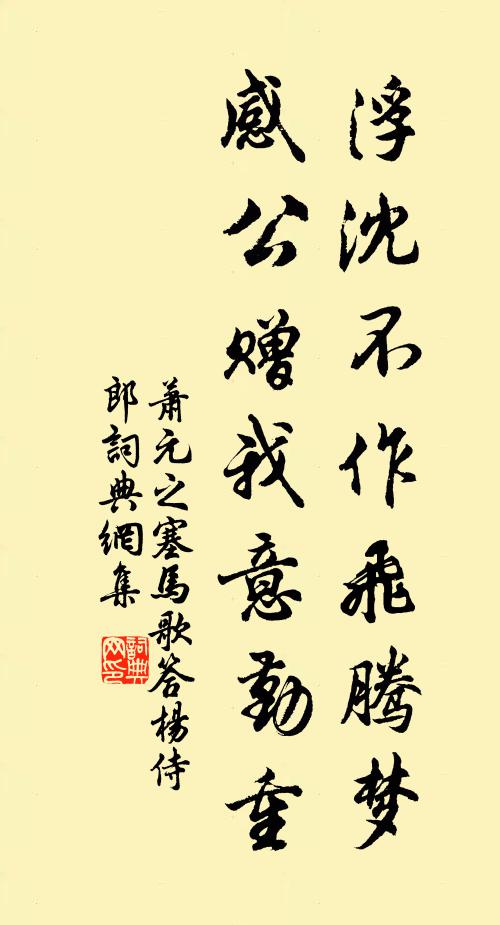 浮沈不作飛騰梦
感公赠我意勤重
蕭元之塞馬歌答楊侍
郎詞典網集
詞典
网印